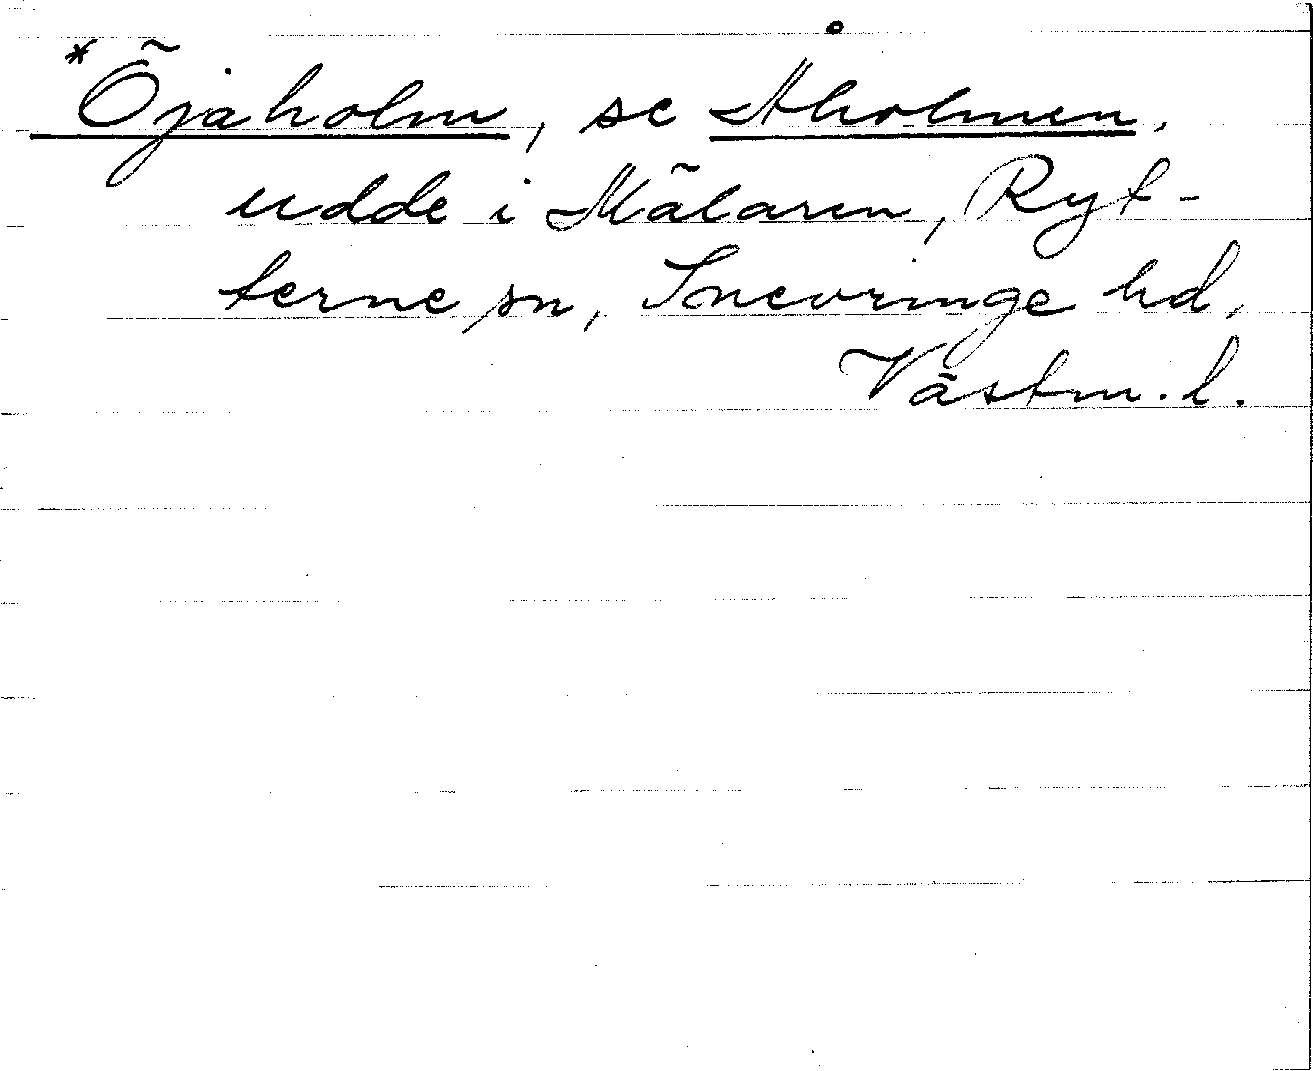 *Öjaholm, se Åholmen,
udde i Mälaren, Ryt-
terne sn, Snevringe hd,
Västm. l.